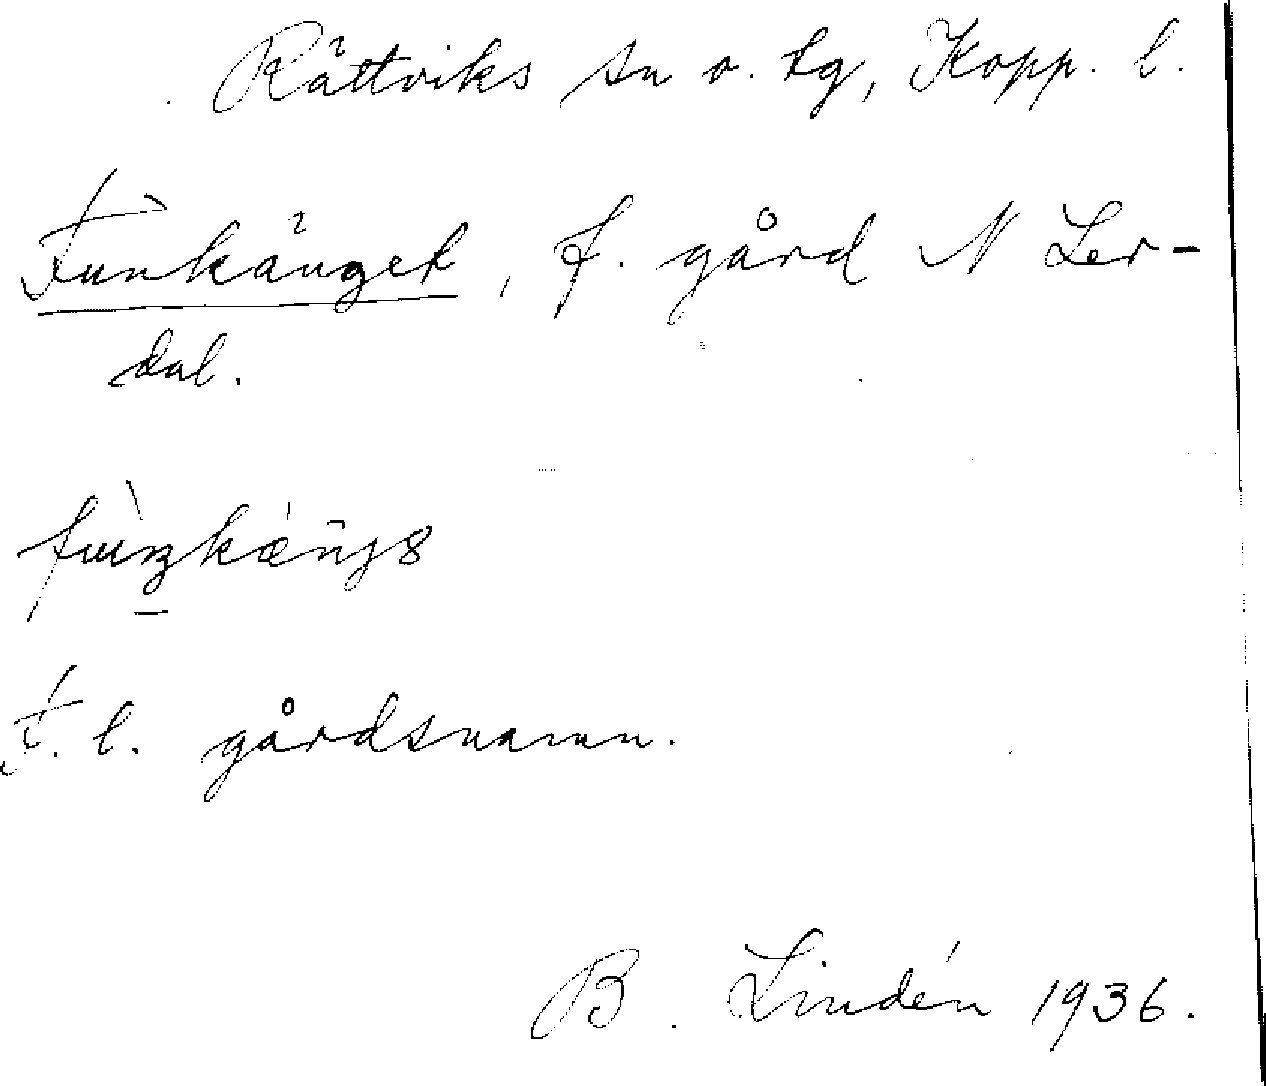 Rättviks sn o. tg, Kopp. l.
Funkänget, f. gård N Ler-
dal.
F. l. gårdsnamn.
B. Lindén 1936.